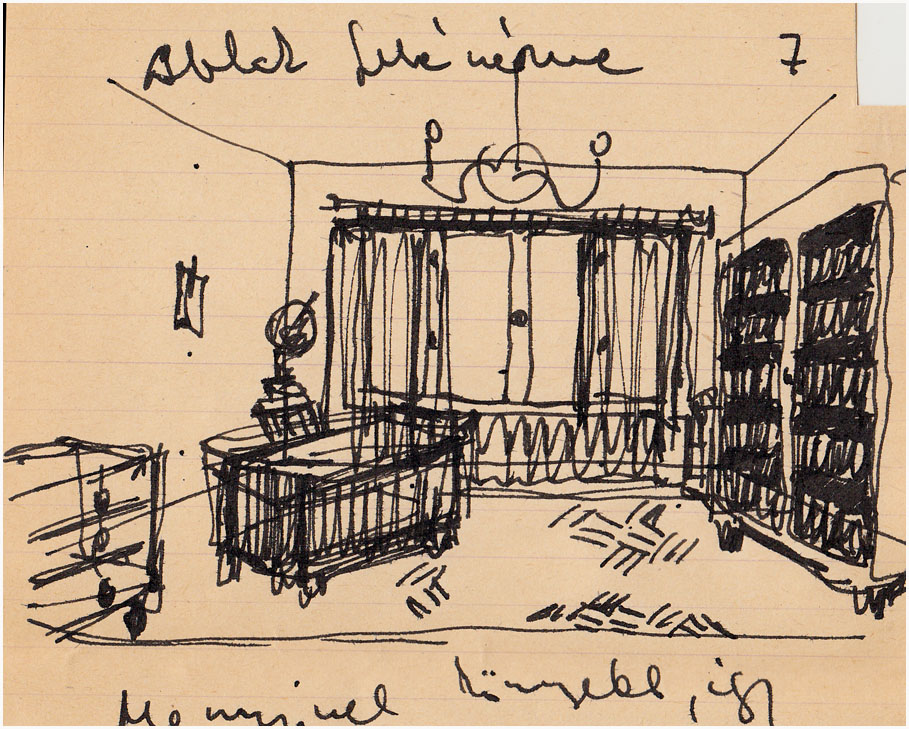 Ablak felé nézve 7
Mennyivel könnyebb, így